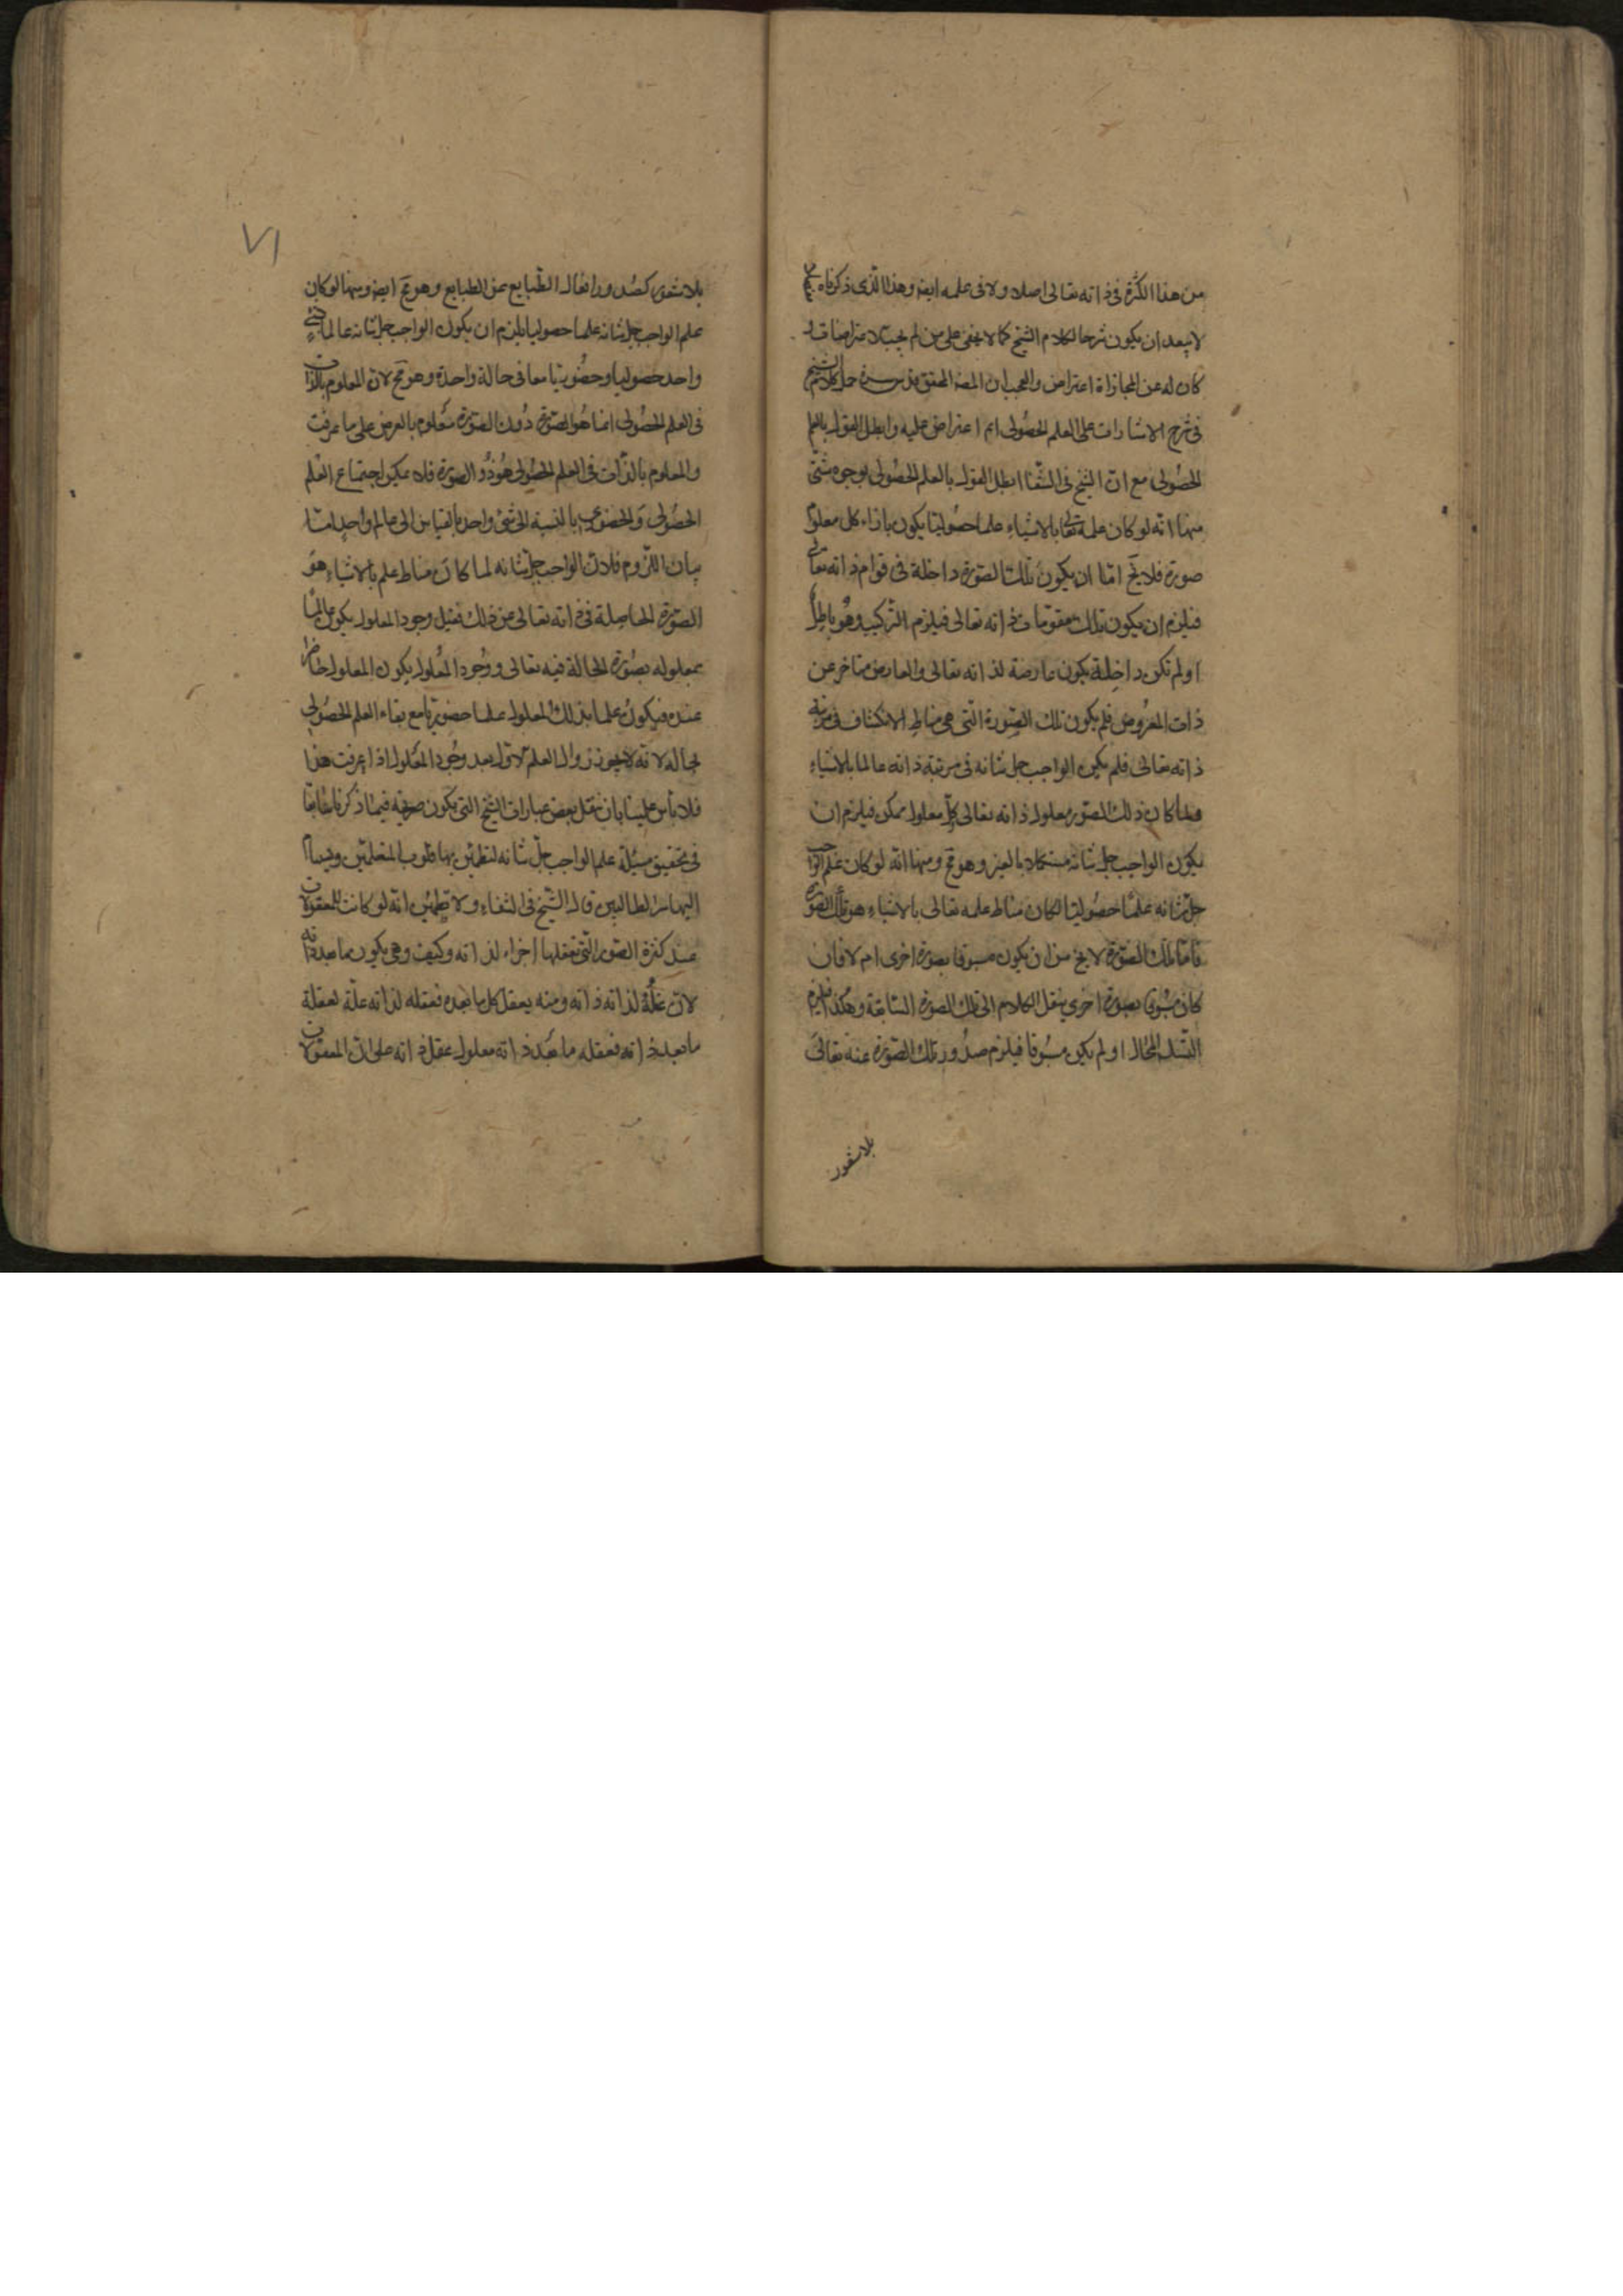 من هذا الكثرة فى ذاته تعالى اصلا ولا فى علمه ايضا وهذا الذى ذكرناه
لا يبعد ان يكون شرحا لكلام الشيخ كما لا يخفى على من لم يجب
كان له عن المجازاة اعتراض والعجب ان المص المحقق قدس سره حمل كلام الشيخ
فى شرح الاشارات على العلم الحصولى ثم اعترض عليه وابطل القول بالعلم
الحصولى مع ان الشيخ فى الشفا ابطل القول بالعلم الحصولى بوجوه شتى
منها انه لو كان علمه تعالى بالاشياء علما حصوليا يكون بازاء كل معلول
صورة فلا يخ اما ان يكون تلك الصورة داخلة فى قوام ذاته تعالى
فيلزم ان يكون تلك مقومات ذاته تعالى فيلزم التركيب وهو باطل
او لم تكن داخلة يكون عارضة لذاته تعالى والعارض متاخر عن
ذات المعروض فلم يكون تلك الصورة التى هى مناط الانكشاف فى مرتبة
ذاته تعالى فلم يكن الواجب جل شانه فى مرتبة ذاته عالما بالاشياء
فلما كان ذلك الصور معلول ذاته تعالى كل معلول ممكن فيلزم ان
يكون الواجب جل شانه مستكملا بالغير وهو مح ومنها انه لو كان علم الواجب
جل شانه علما حصوليا لكان مناط علمه تعالى بالاشياء هو تلك الصورة
فاما تلك الصورة لا يخ من ان يكون مسبوقا بصورة اخرى ام لا فان
كان مسبوقا بصورة اخرى ينقل الكلام الى تلك الصورة السابقة وهكذا فيلزم
التسلسل المحال او لم يكن مسبوقا فيلزم صدور تلك الصورة عنه تعالى
بلا شعور
٧١
بلا شعور كصدور افعال الطبايع عن الطبايع وهو مح ايضا ومنها لو كان
علم الواجب جل شانه علما حصوليا يلزم ان يكون الواجب جل شانه عالما بشئ
واحد حصوليا وحضوريا معا فى حالة واحدة وهو مح لان المعلوم بالذات
فى العلم الحصولى انما هو الصورة وذو الصورة معلوم بالعرض على ما عرفت
والمعلوم بالذات فى العلم الحضورى هو ذو الصورة فلا يمكن اجتماع العلم
الحصولى والحضورى بالنسبة الى شئ واحد بالقياس الى عالم واحد اما
بيان اللزوم فلان الواجب جل شانه لما كان مناط علم بالاشياء هو
الصورة الحاصلة فى ذاته تعالى عن ذلك فقبل وجود المعلول يكون عالما
بمعلوله بصورة الحالة فيه تعالى ووجود المعلول يكون المعلول حاضرا
عنده فيكون علما بذلك المعلول علما حضوريا مع بقاء العلم الحصولى
بحاله لانه لا يجوز زوال العلم الاول بعد وجود المعلول اذا عرفت هذا
فلا باس علينا بان ننقل بعض عبارات الشيخ التى يكون صريحة فيما ذكرنا سابقا
فى تحقيق مسئلة علم الواجب جل شانه لتطمئن بها قلوب المتعلمين
اليها الطالبين قال الشيخ فى الشفاء ولا تظن انه لو كانت للمعقولات
عنده كثرة الصور التى تعقلها اجزاء لذاته وكيف وهى يكون ما بعد ذاته
لان عقله لذاته ذاته ومنه يعقل كل ما بعده فعقله لذاته علة لعقله
ما بعد ذاته فعقله ما بعد ذاته معلول عقل ذاته على ان المعقولات